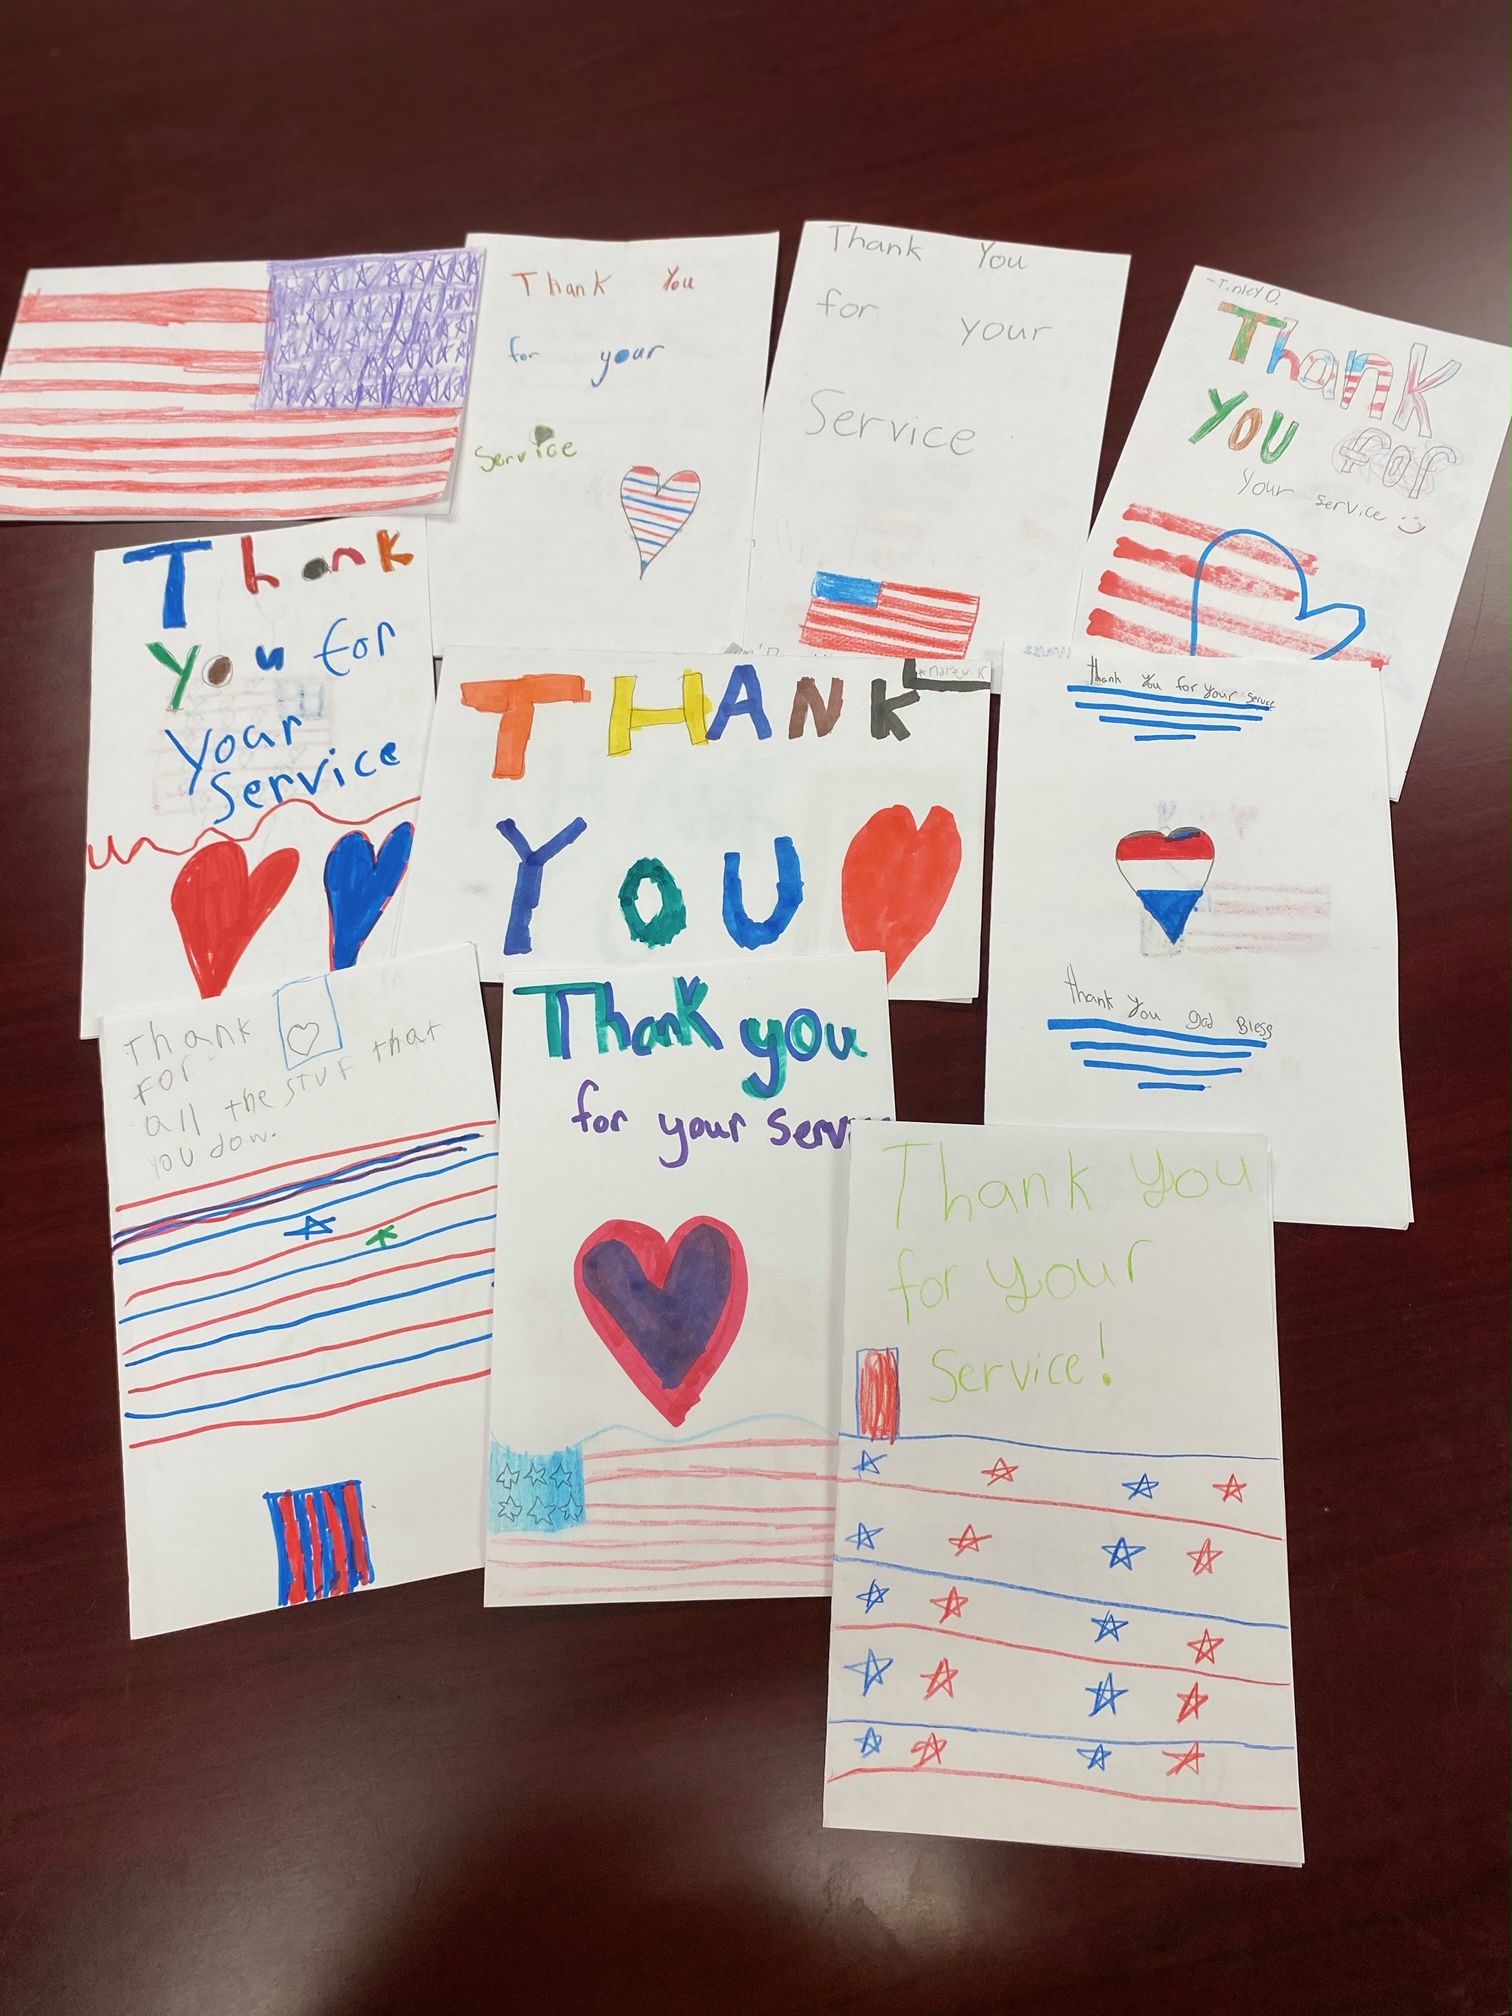 Thank You
for your
Service
Thank You
for your
Service
-Tinley O.
Thank
You for
Your service :)
Thank
You for
Your
Service
Andrew K
THANK
YOU
Thank You for your service
Thank You God Bless
Thank
For
all the STUF that
You dow.
Thank you
for your serv
Thank You
for Your
Service!